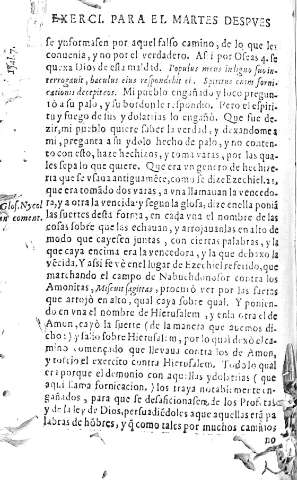 EXERCI. PARA EL MARTES DESPVES
se ynformasen por aquel falso camino, de lo que les
conuenia, y no por el verdadero. Asi por Oseas 4. se
quexa Dios de esta maldad. Populus meus in ligno suo in-
Isal. 7.
terrogauit, baculus eius respondebit ei. Spiritus enim forni-
cationi decepit eos. Mi pueblo engañado y loco pregun-
tò a su palo, y su bordon le respondio. Pero el espiri-
tu y fuego de sus ydolatrias lo engañó. Que fue de-
zir, mi pueblo quiere saber la verdad, y dexandome a
mi, pregunta a su ydolo hecho de palo, y no conten-
to con esto, haze hechizos, y toma varas, por las qua-
les sepa lo que quiere. Que era vn genero de hechize-
ria que se vsaua antiguamẽte, como se dize Ezechiel 21.
que era tomãdo dos varas, a vna llamauan la vencedo-
Glos. Nycol
in coment.
ra, y a otra la vencida: y segun la glosa, dize en ella poniã
las suertes desta forma, en cada vna el nombre de las
cosas sobre que las echauan, y arrojauanlas en alto de
modo que cayesen juntas, con ciertas palabras, y la
que caya encima era la vencedora, y la que debaxo la
vẽcida. Y asi se vè en el lugar de Ezechiel referido, que
marchando el campo de Nabuchdonosor contra los
Amonitas, Miscuit sagittas, procurò ver por las suertes
que arrojò en alto, qual caya sobre qual. Y ponien-
do en vna el nombre de Hierusalem, y en la otra el de
Amon, cayò la suerte (de la manera que auemos di-
cho:) y salio sobre Hierusalem, por lo qual dexò el ca-
mino començado que lleuaua contra los de Amon,
y torcio el exercito contra Hierusalem. Todo lo qual
era porque el demonio con aquellas ydolatrias (que
aqui llama fornicacion) los traya notablemente en-
gañados, para que se desaficionasen de los Profetas
y de la ley de Dios, persuadiẽdoles que aquellas erã pa
labras de hõbres, y q̃ como tales por muchos caminos
no